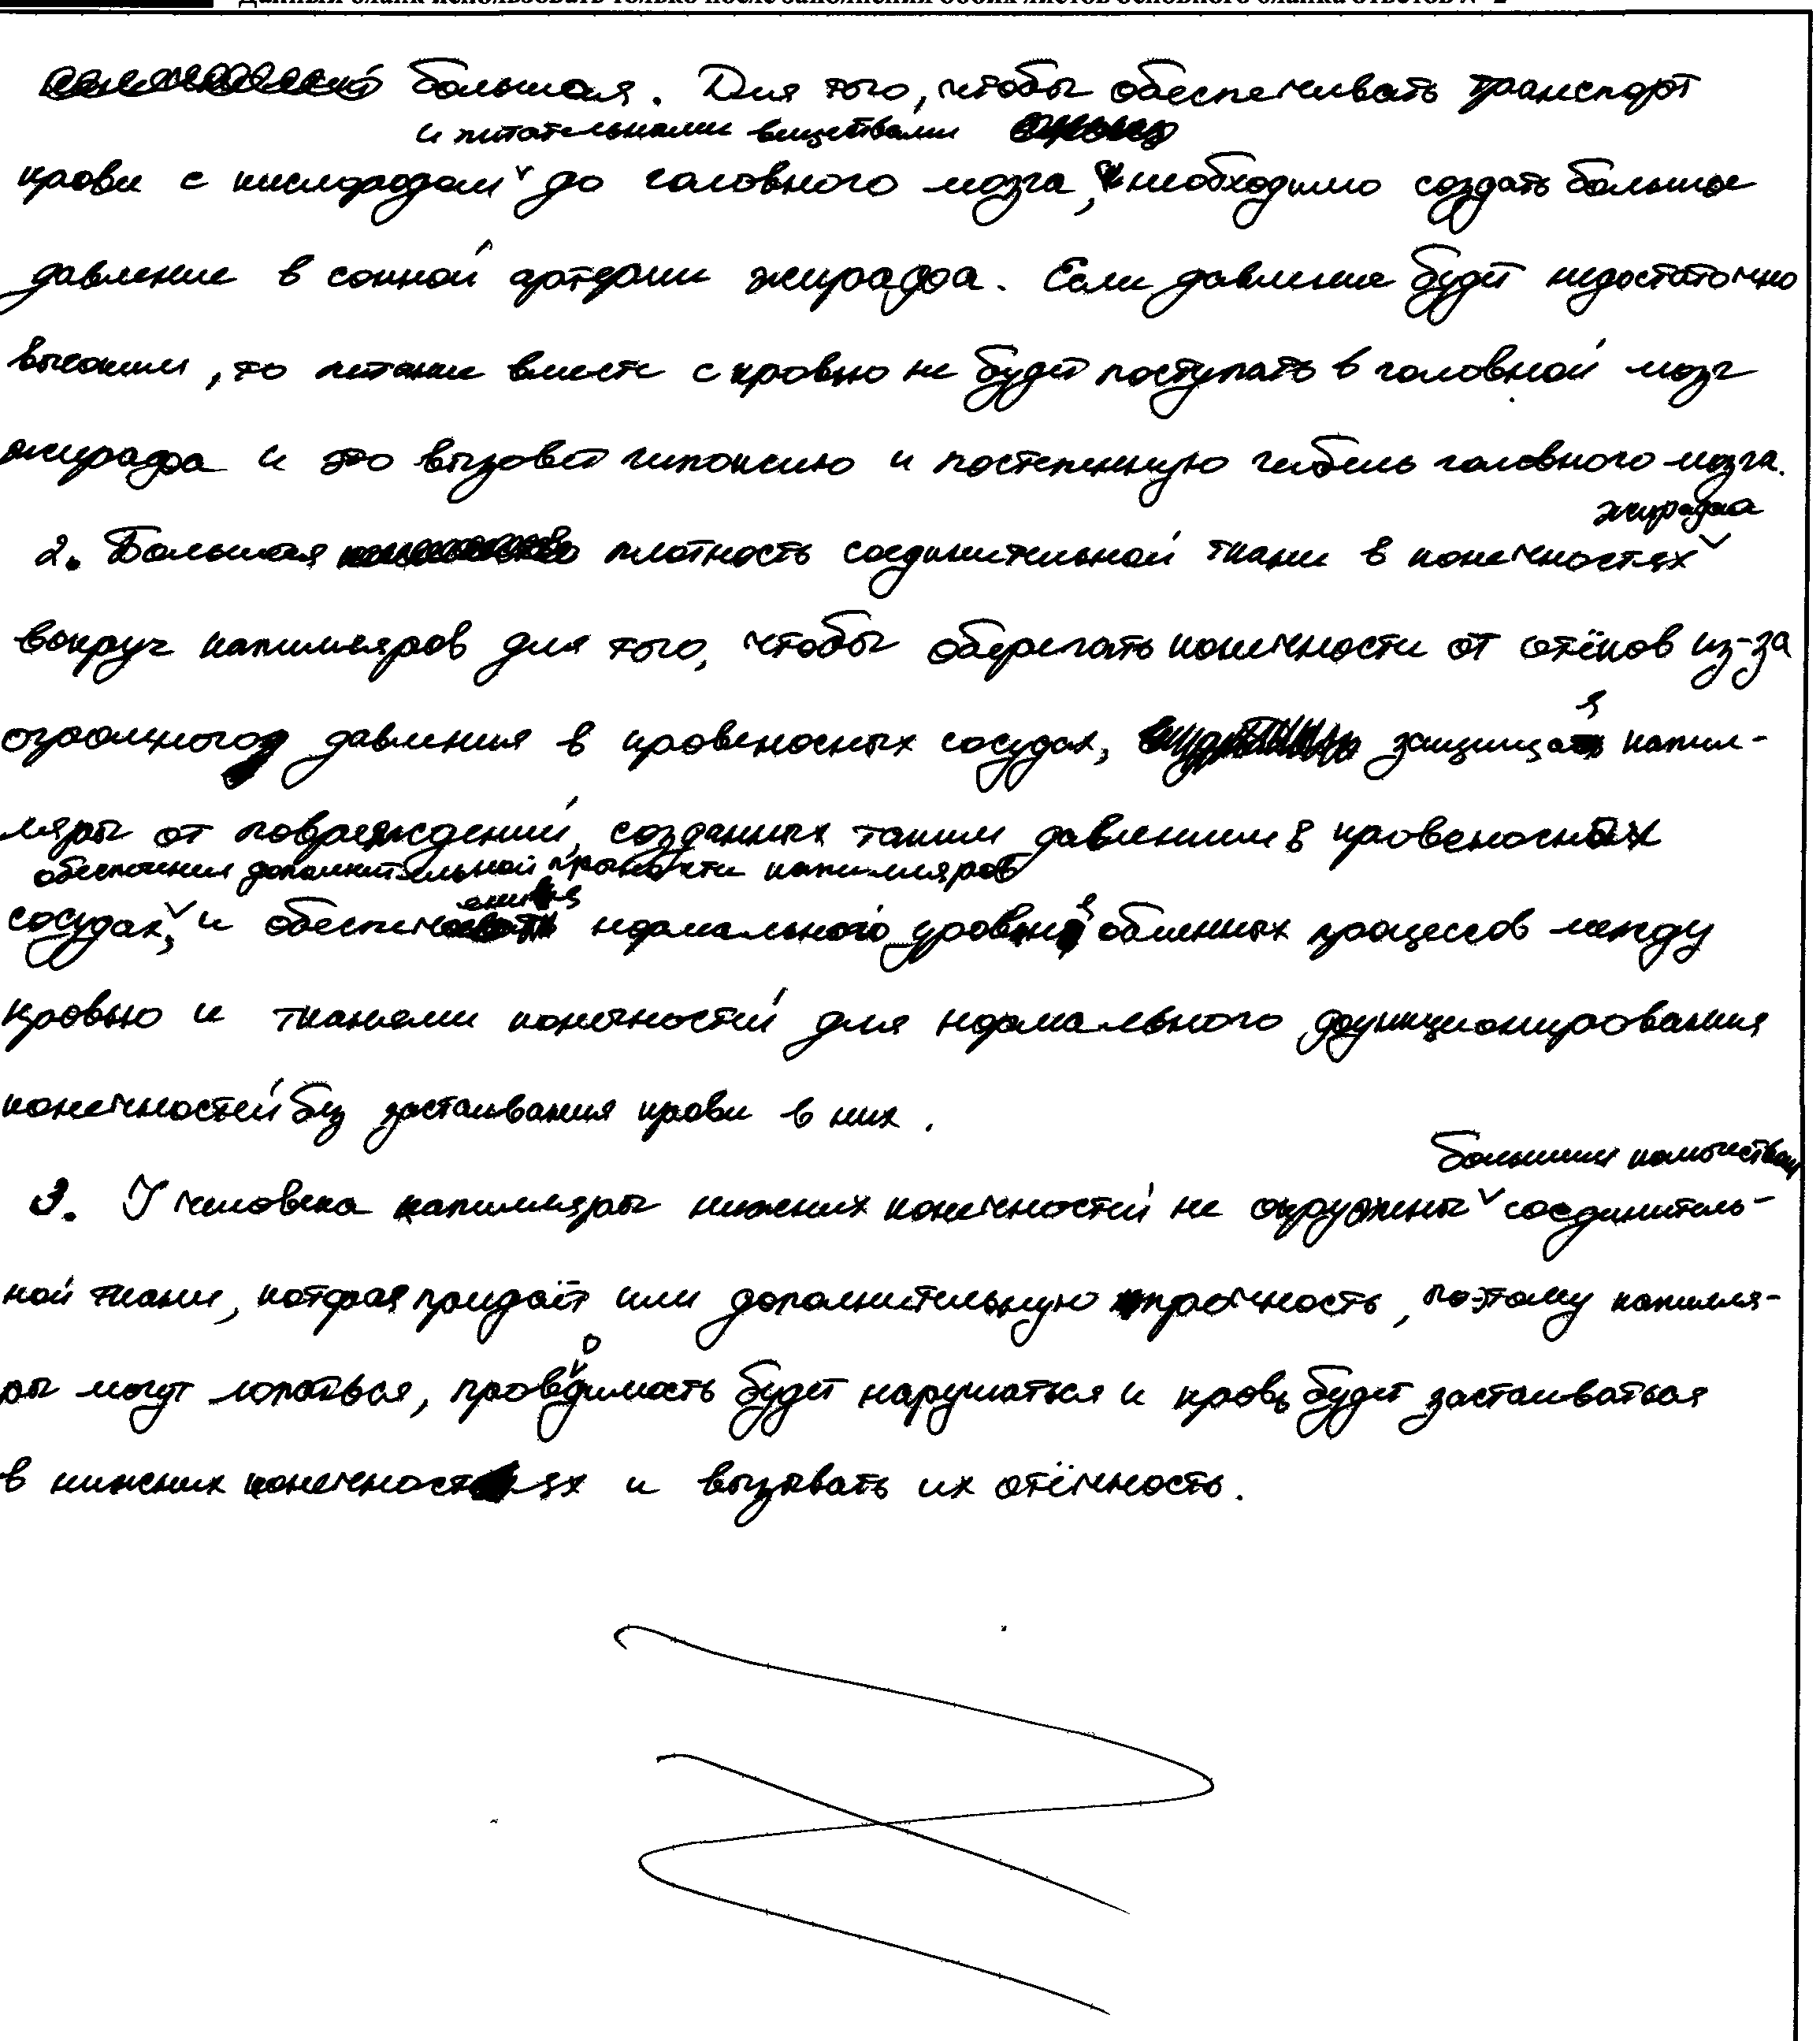 Данный бланк использовать только после заполнения обоих листов основного бланка ответов № 2
большая. Для того, чтобы обеспечивать транспорт
и питательными веществами
крови с кислородом до головного мозга, необходимо создать большое
давление в сонной артерии жирафа. Если давление будет недостаточно
высоким, то питание вместе с кровью не будет поступать в головной мозг
жирафа и это вызовет гипоксию и постепенную гибель головного мозга.
жирафа
2. Большая плотность соединительной ткани в конечностях
вокруг капилляров для того, чтобы оберегать конечности от отёков из-за
огромного давления в кровеносных сосудах, защищая капил-
ляры от повреждений, созданных таким давлением в кровеносных
обеспечения дополнительной прочности капилляров
сосудах, и обеспечения нормального уровня обменных процессов между
кровью и тканями конечностей для нормального функционирования
конечностей без застаивания крови в них.
большим количеством
3. У человека капилляры нижних конечностей не окружены соединитель-
ной ткани, которая придаёт им дополнительную прочность, поэтому капилля-
ры могут лопаться, проводимость будет нарушаться и кровь будет застаиваться
в нижних конечностях и вызывать их отёчность.